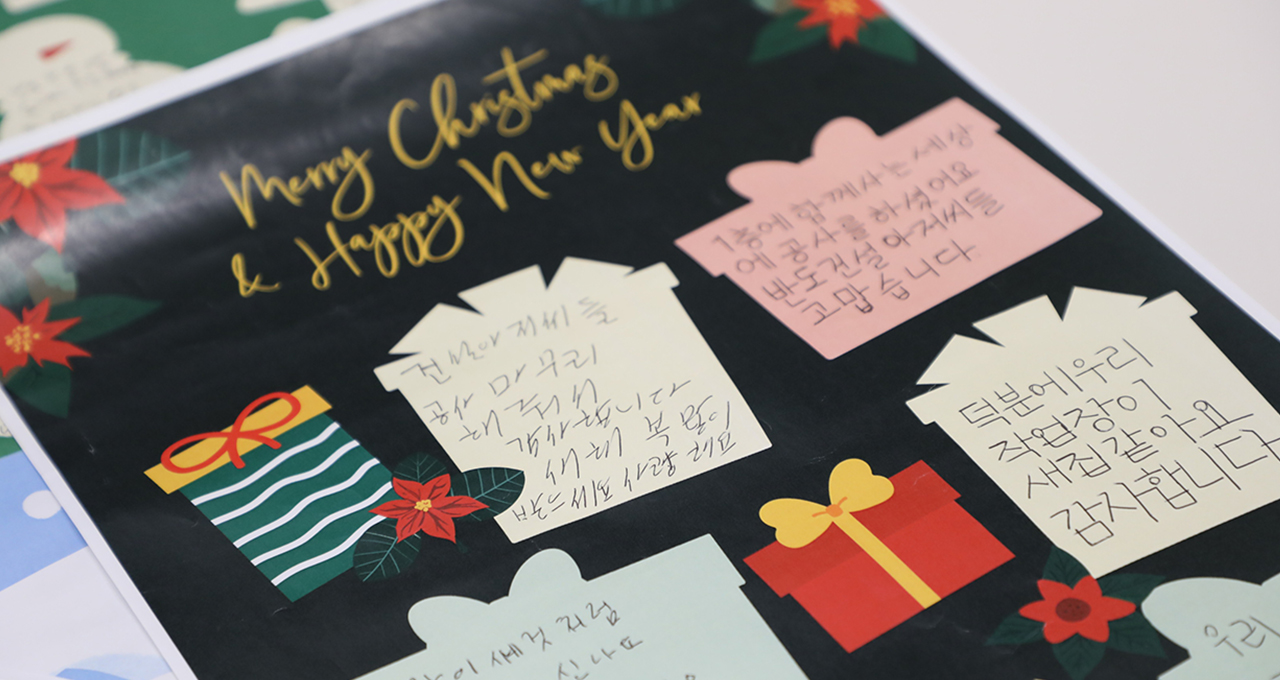 Merry Christmas
& Happy New Year
1층에 함께사는세상
에 공사를 하셨어요
반도건설 아저씨들
고맙습니다
건설아저씨들
공사 마무리
해줘서
감사합니다
새해 복 많이
사랑해요
덕분에우리
작업장이
새집같아요
감사합니다
새것처럼
신나요
우리